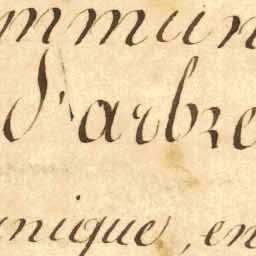 mmun
d'arbre
unique, en